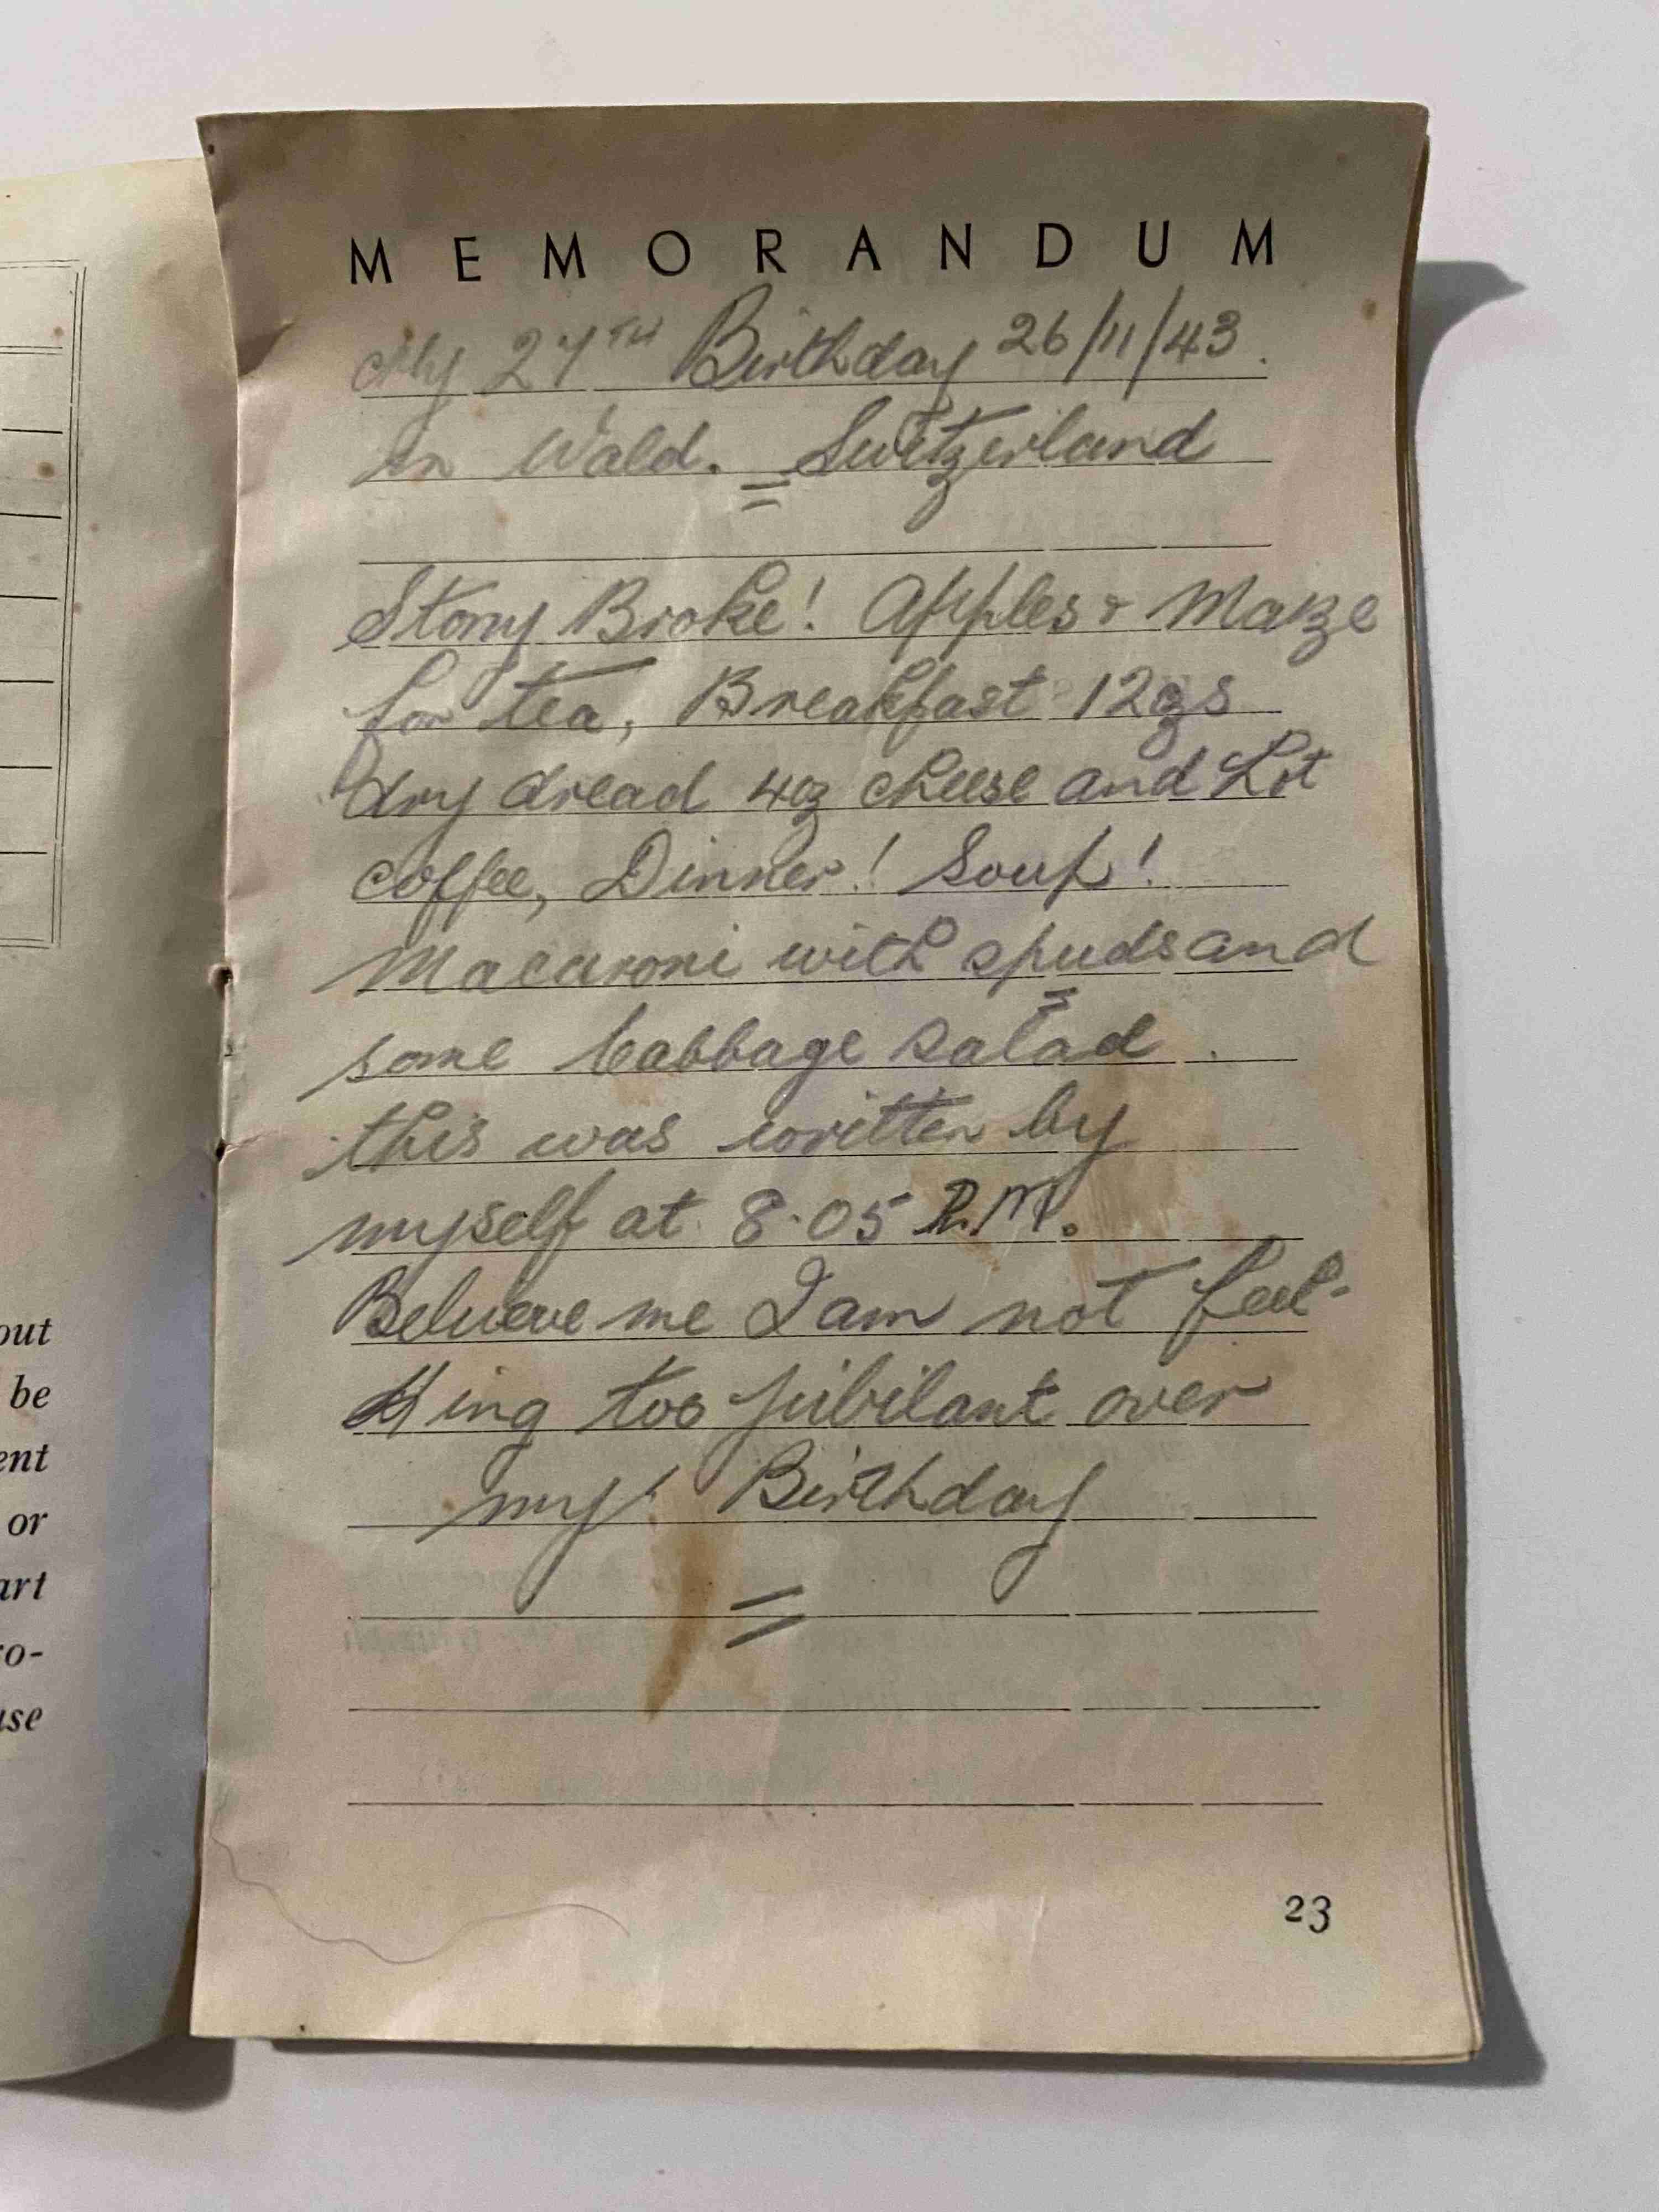 MEMORANDUM
My 27TH Birthday 26/11/43.
in Wald. = Switzerland
Stony Broke! Apples & Maze
for tea, Breakfast 12ozs
dry dread 4oz cheese and Lot
coffee, Dinner! Soup!
Macaroni with spuds and
some Cabbage salad.
this was written by
myself at 8.05 P.M.
Believe me I am not feel-
ing too jubilant over
my Birthday
=
23
out
be
ent
or
art
ro-
use